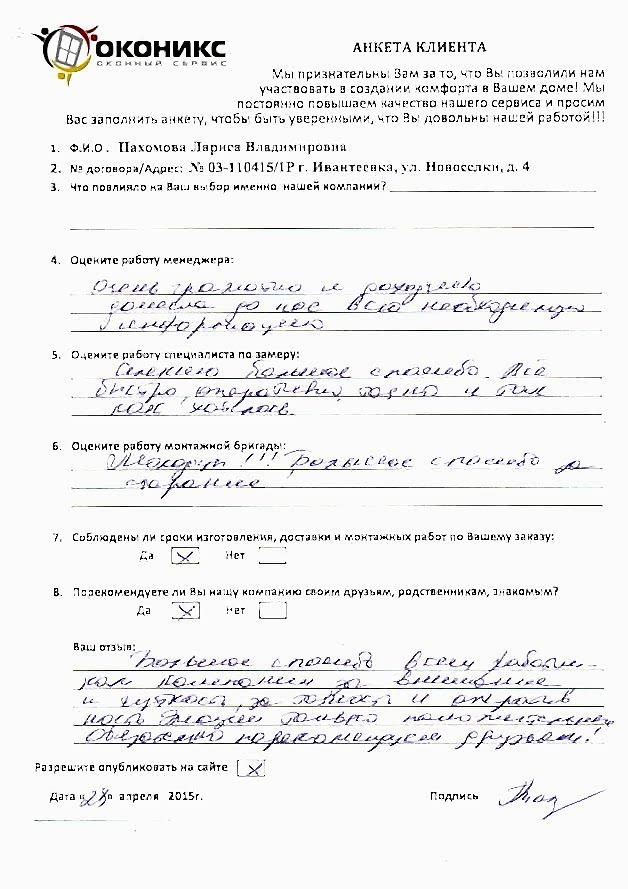 ОКОНИКС
ОКОННЫЙ СЕРВИС
АНКЕТА КЛИЕНТА
Мы признательны Вам за то, что Вы позволили нам
участвовать в создании комфорта в Вашем доме! Мы
постоянно повышаем качество нашего сервиса и просим
Вас заполнить анкету, чтобы быть уверенными, что Вы довольны нашей работой!!!
1. Ф.И.О. Пахомова Лариса Владимировна
2. № договора/Адрес: № 03-110415/1Р г. Ивантеевка, ул. Новоселки, д. 4
3. Что повлияло на Ваш выбор именно нашей компании?
4. Оцените работу менеджера:
Очень грамотно и
донесла до нас всю необходимую
информацию
5. Оцените работу специалиста по замеру:
большое спасибо. Всё
быстро, оперативно, точно и так
как хотели.
6. Оцените работу монтажной бригады:
Молодцы!!! Большое спасибо за
старание
7. Соблюдены ли сроки изготовления, доставки и монтажных работ по Вашему заказу:
Да X Нет
8. Порекомендуете ли Вы нашу компанию своим друзьям, родственникам, знакомым?
Да X Нет
Ваш отзыв:
Большое спасибо всем работни-
кам компании за внимание
и чуткость, за точность и оператив
ность. Эмоции только положительные
Обязательно порекомендуем друзьям!
Разрешите опубликовать на сайте X
Дата «28» апреля 2015г. Подпись